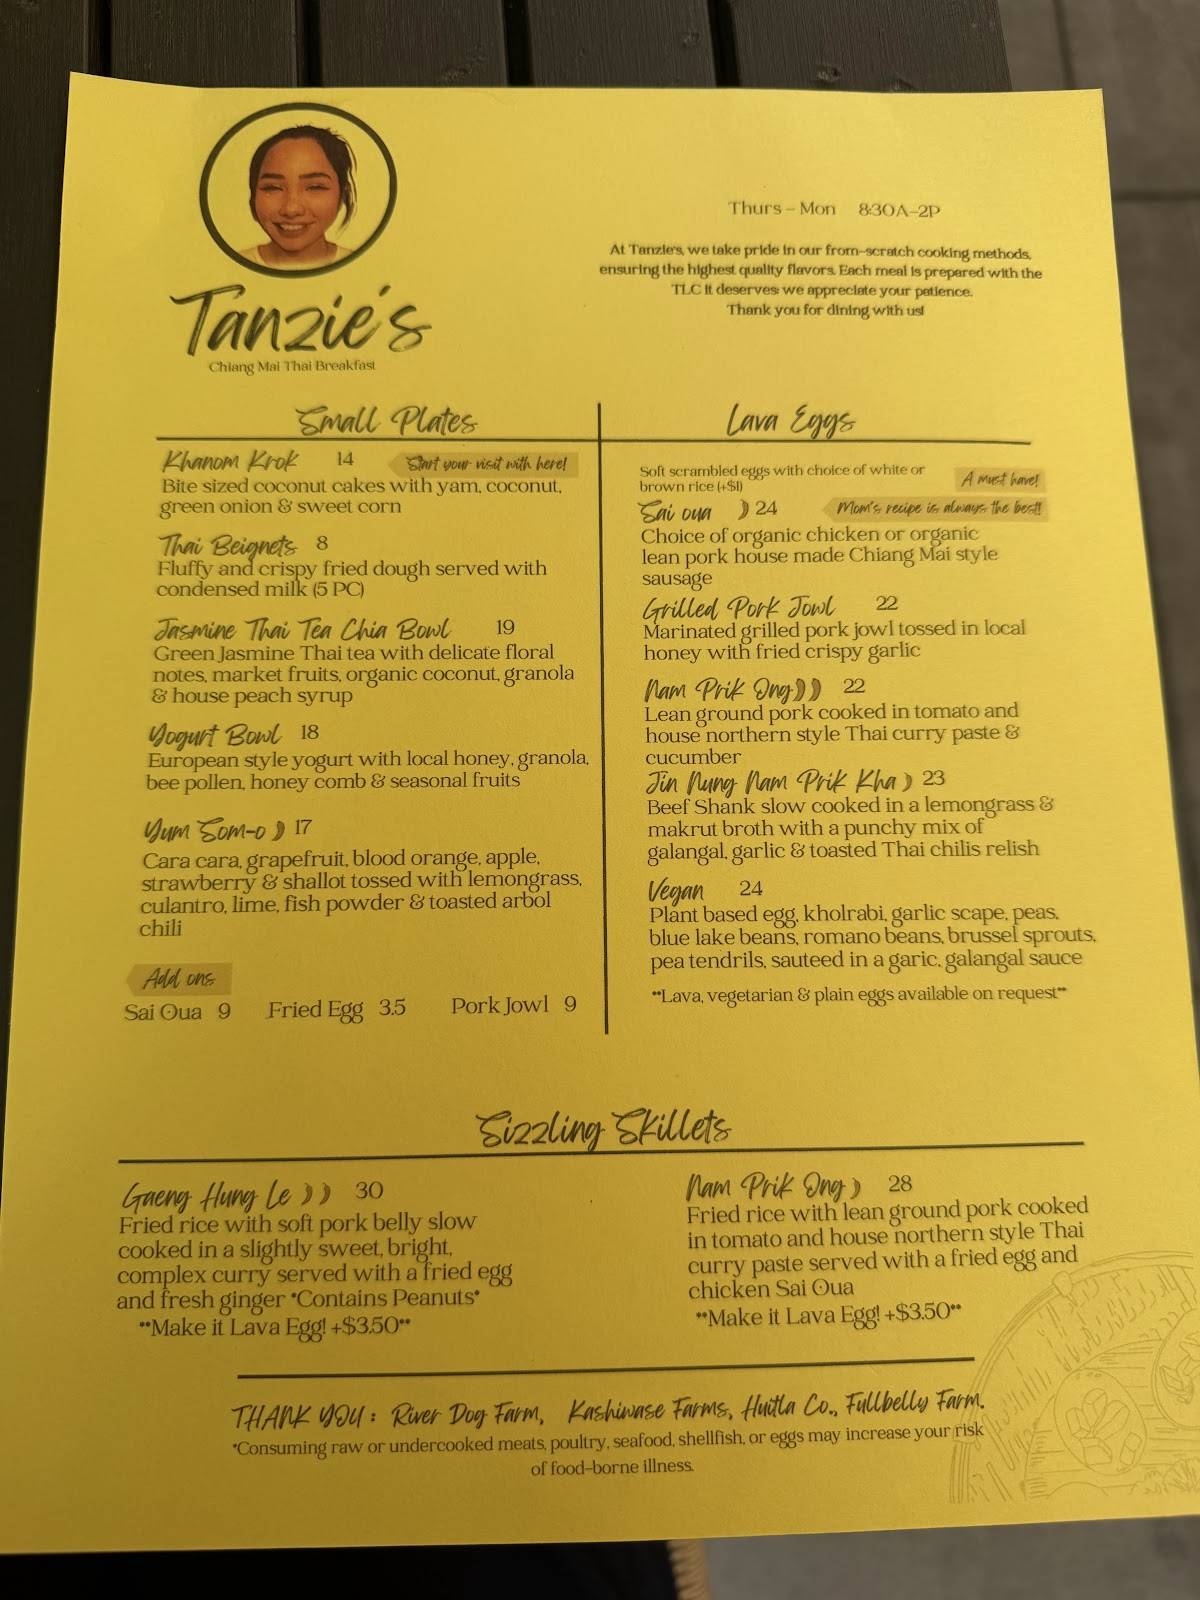 Tanzie's
Chiang Mai Thai Breakfast
Thurs - Mon 8:30A-2P
At Tanzie's, we take pride in our from-scratch cooking methods,
ensuring the highest quality flavors. Each meal is prepared with the
TLC it deserves: we appreciate your patience.
Thank you for dining with us!
Small Plates
Khanom Krok 14 Start your visit with here!
Bite sized coconut cakes with yam, coconut,
green onion & sweet corn
Thai Beignets 8
Fluffy and crispy fried dough served with
condensed milk (5 PC)
Jasmine Thai Tea Chia Bowl 19
Green Jasmine Thai tea with delicate floral
notes, market fruits, organic coconut, granola
& house peach syrup
Yogurt Bowl 18
European style yogurt with local honey, granola,
bee pollen, honey comb & seasonal fruits
Yum Som-o 17
Cara cara, grapefruit, blood orange, apple,
strawberry & shallot tossed with lemongrass,
culantro, lime, fish powder & toasted arbol
chili
Add ons
Sai Oua 9 Fried Egg 3.5 Pork Jowl 9
Lava Eggs
Soft scrambled eggs with choice of white or
brown rice (+$1)
A must have!
Sai oua 24 Mom's recipe is always the best!!
Choice of organic chicken or organic
lean pork house made Chiang Mai style
sausage
Grilled Pork Jowl 22
Marinated grilled pork jowl tossed in local
honey with fried crispy garlic
Nam Prik Ong 22
Lean ground pork cooked in tomato and
house northern style Thai curry paste &
cucumber
Jin Nung Nam Prik Kha 23
Beef Shank slow cooked in a lemongrass &
makrut broth with a punchy mix of
galangal, garlic & toasted Thai chilis relish
Vegan 24
Plant based egg, kholrabi, garlic scape, peas,
blue lake beans, romano beans, brussel sprouts,
pea tendrils, sauteed in a garic, galangal sauce
**Lava, vegetarian & plain eggs available on request**
Sizzling Skillets
Gaeng Hung Le 30
Fried rice with soft pork belly slow
cooked in a slightly sweet, bright,
complex curry served with a fried egg
and fresh ginger *Contains Peanuts*
**Make it Lava Egg! +$3.50**
Nam Prik Ong 28
Fried rice with lean ground pork cooked
in tomato and house northern style Thai
curry paste served with a fried egg and
chicken Sai Oua
**Make it Lava Egg! +$3.50**
THANK YOU : River Dog Farm, Kashiwase Farms, Huitla Co., Fullbelly Farm.
*Consuming raw or undercooked meats, poultry, seafood, shellfish, or eggs may increase your risk
of food-borne illness.